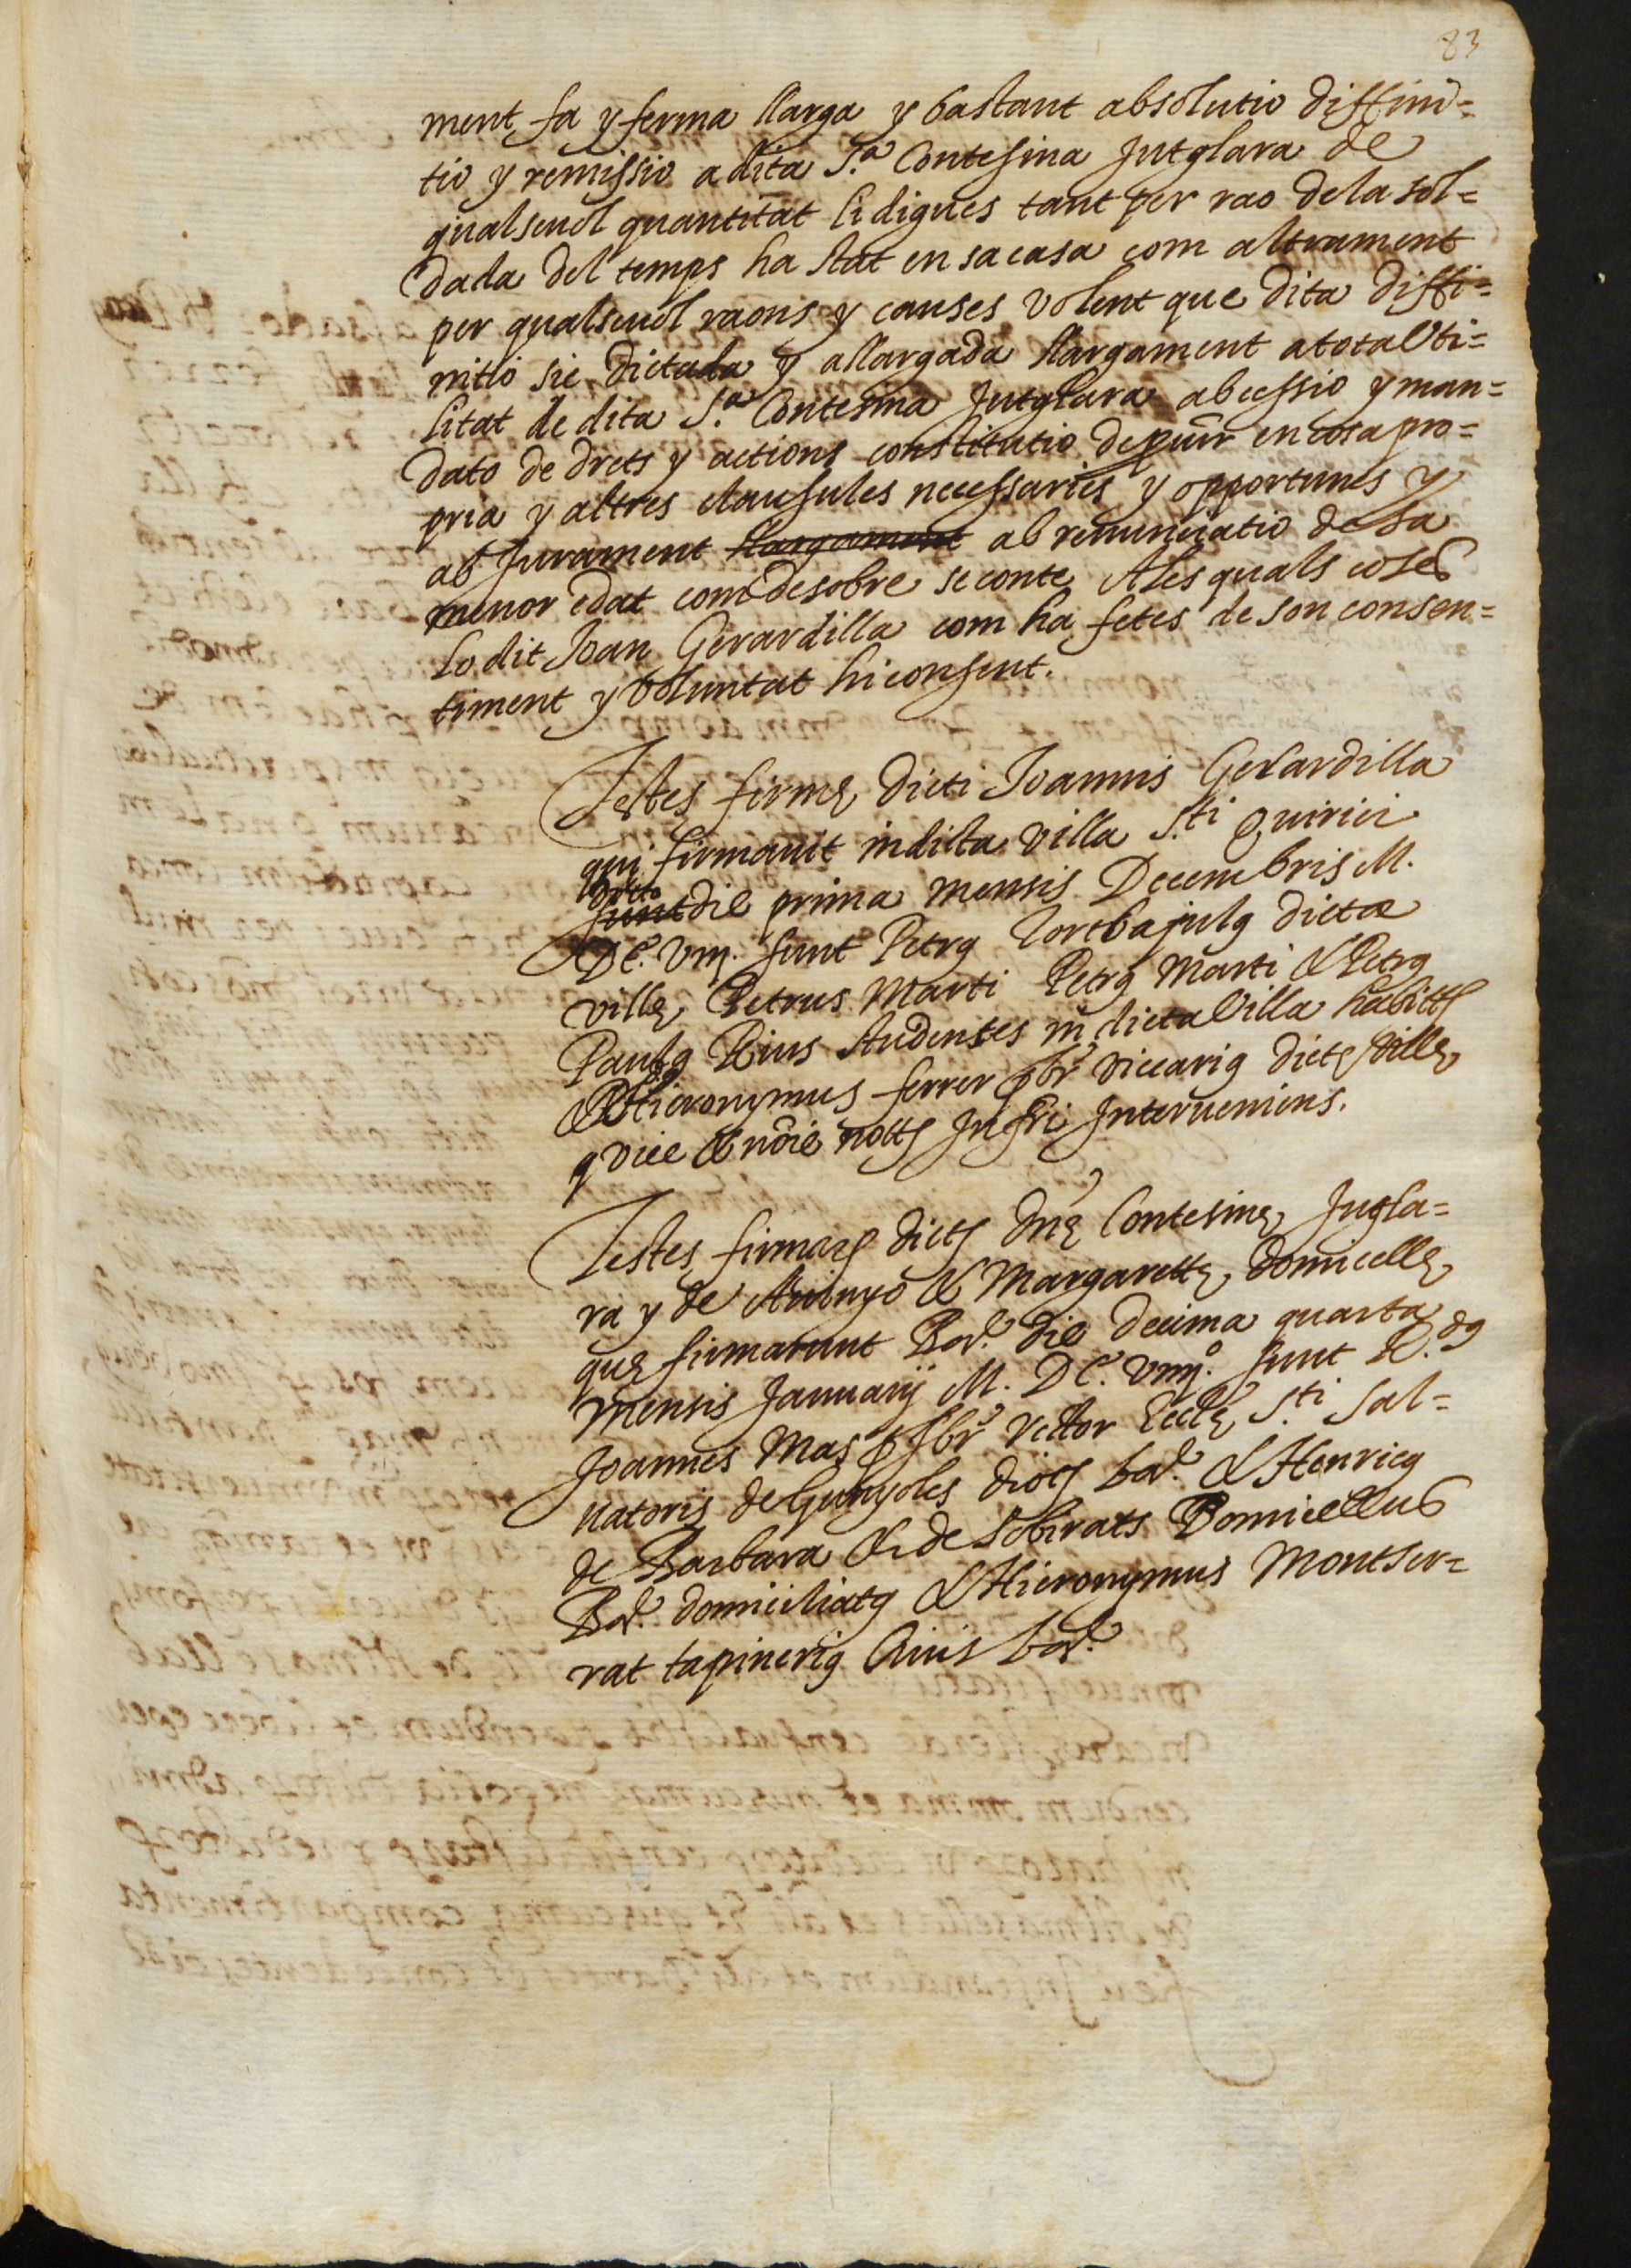 83
ment fa y ferma llarga y bastant absolutio diffini=
tio y remissio a dita S.ª Contesina Jutglara de
qualsevol quantitat li digues tant per rao de la sol=
dada del temps ha stat en sa casa com altrament
per qualsevol raons y causes volent que dita diffi=
nitio sie dictada y allargada llargament a tota uti=
litat de dita S.ª Contesina Jutglara ab cessio y man=
dato de drets y actions constitutio de pùrr en cosa pro=
pria y altres clausules necessaries y opportunes y
ab Jurament llargament ab renunciatio de sa
menor edat com desobre se conte Ales quals coses
lo dit Joan Gerardilla com ha fetes de son consen=
timent y voluntat hi consent.
Testes firmę dicti Joannis Gerardilla
qui firmavit in dicta villa S.ti Quirici
sunt die prima mensis Decembris M.
DC. viiij. sunt Petrꝰ Tort bajulꝰ dictæ
villę Petrus Marti Petrꝰ Marti & Petrꝰ
Paulꝰ Rius studentes in dicta villa habitts
& Hieronymus ferrer pbr̃ viccariꝰ dictę villę
q vice & nõie notts Infri Interveniens.
Testes firmaꝝ dictę dñę Contesinę Jugla=
ra y de Alunyo & Margarettę domicellę
quę firmarunt Bar. die decima quarta
mensis Januarij M. DC. viiij.º sunt R.dꝰ
Joannes Mas pſbr̃ rector Ecclę S.ti Sal=
vatoris de Gunyoles diocs bar. & Henricꝰ
de Barbara & de Sobirats Domicellus
Bar. domiciliatꝰ & Hieronymus Montser=
rat tapineriꝰ Civis bar.